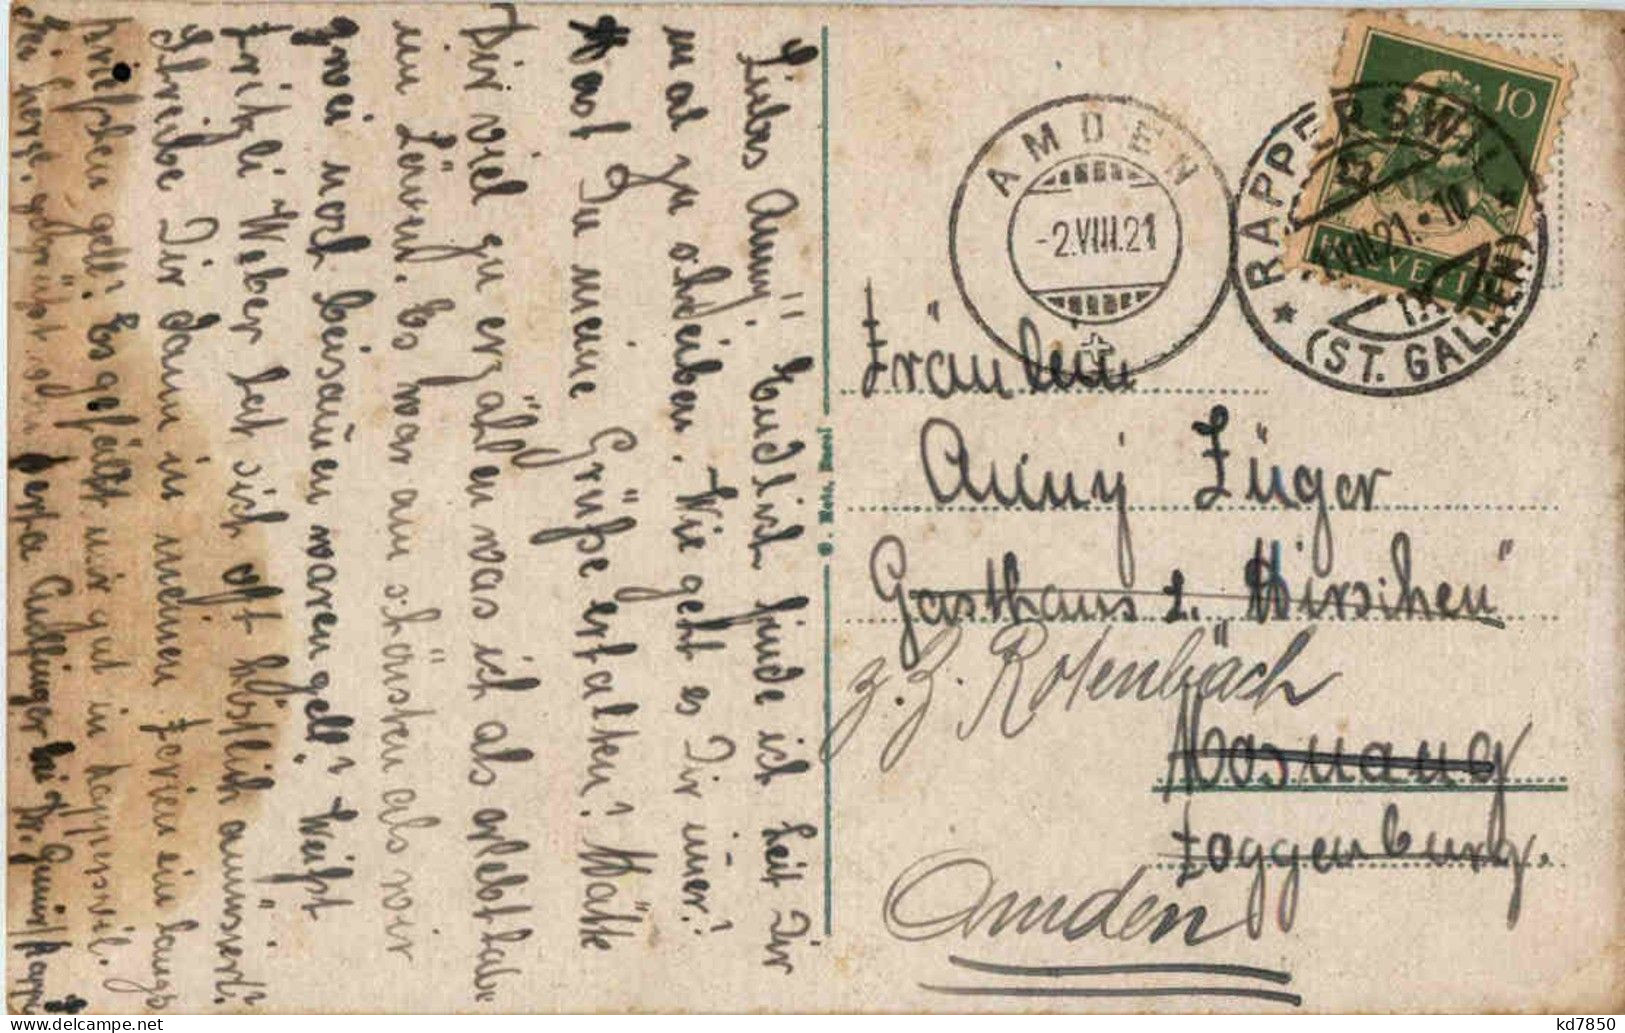 Liebes Anny! Endlich finde ich Zeit Dir
mal zu schreiben. Wie geht es Dir imer?
Hast Du meine Grüße erhalten? Hätte
Dir viel zu erzählen was ich als erlebt habe
in Löwen. Es war am schönsten als wir
zwei noch beisamen waren gell? Weißt
Fritzli Weber hat sich oft köstlich amüsiert.
Schreibe Dir dann in meinen Ferien ein langs
Briefchen gell? Es gefällt mir gut in Rapperswil.
Sei herzl. gegrüßt von
10
HELVETIA
RAPPERSWIL
VIII.21.-10
(ST. GALLEN)
AMDEN
-2.VIII.21
Fräulein
Anny Züger
Gasthaus z. Hirschen"
z. Z. Rotenbäch
Mosnang
Toggenburg.
Amden
kd7850